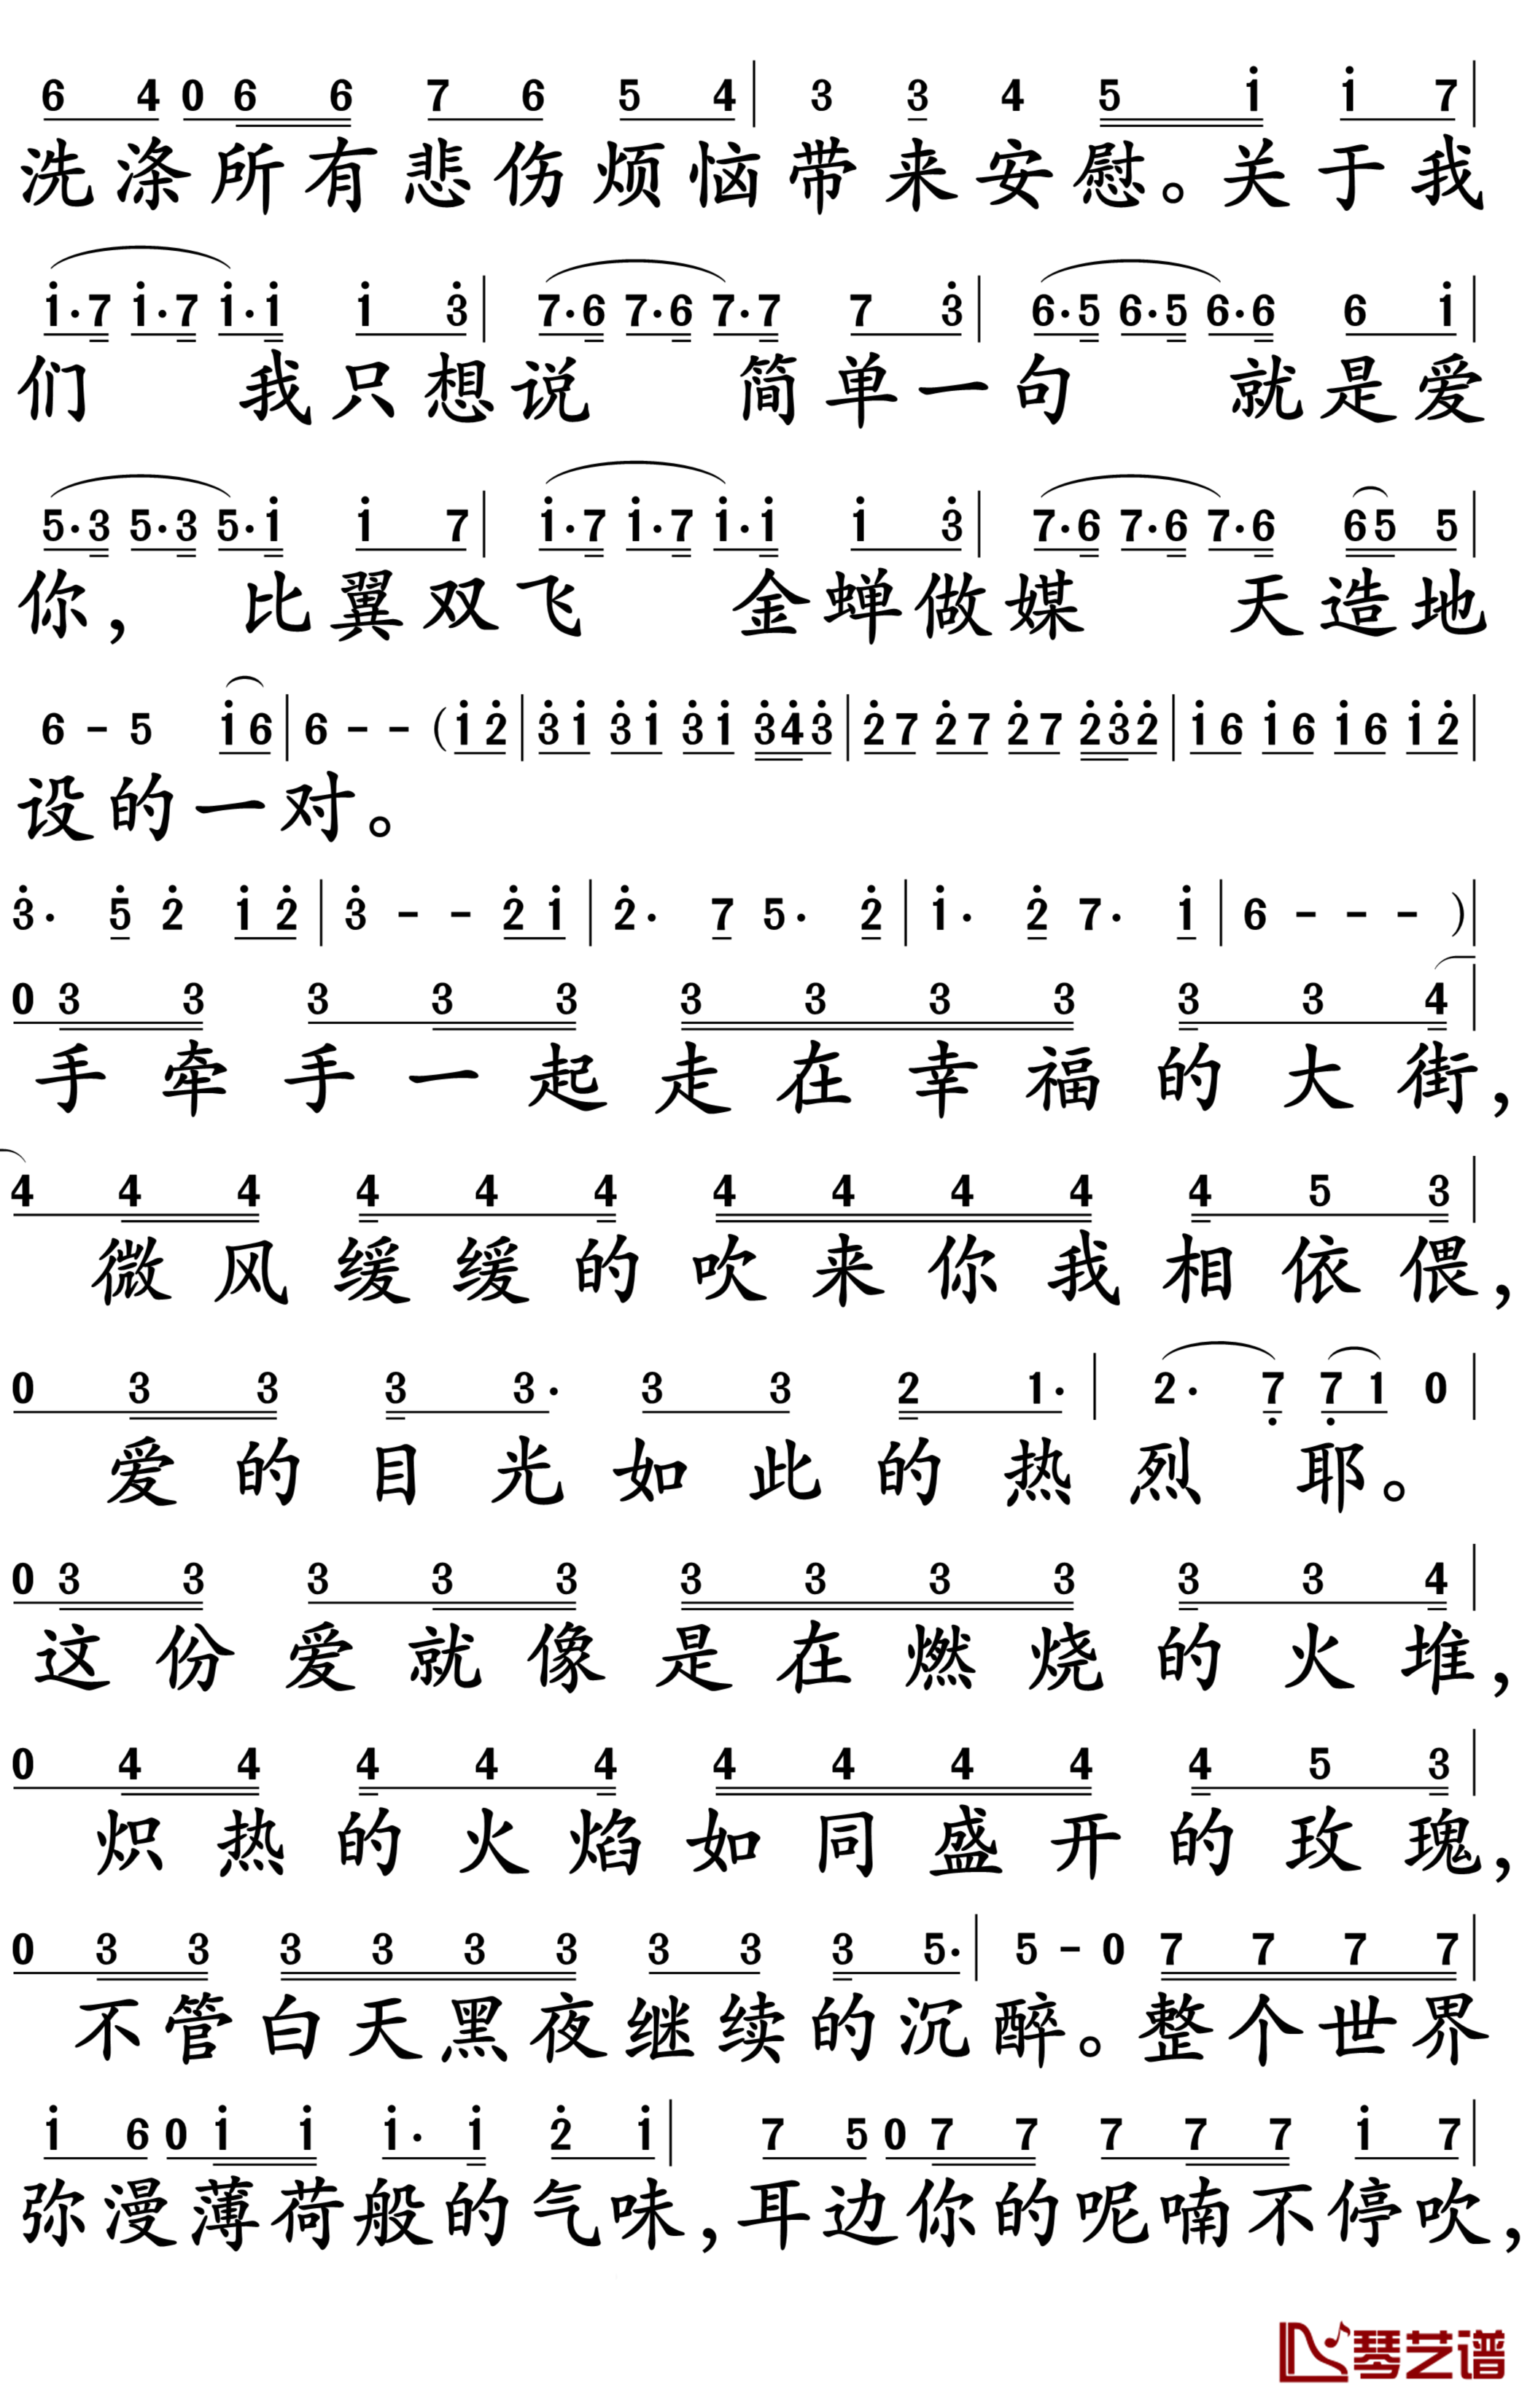 6 4 0 6 6 7 6 5 4 | 3 3 4 5 i i 7 |
洗涤所有悲伤烦恼带来安慰。关于我
i·7 i·7 i·i i 3̇ | 7·6 7·6 7·7 7 3̇ | 6·5 6·5 6·6 6 i |
们 我只想说 简单一句 就是爱
5·3 5·3 5·i i 7 | i·7 i·7 i·i i 3̇ | 7·6 7·6 7·6 6 5 5 |
你, 比翼双飞 金蝉做媒 天造地
6 - 5 i 6 | 6 - - ( i 2̇ | 3̇ i 3̇ i 3̇ i 3̇ 4̇ 3̇ | 2̇ 7 2̇ 7 2̇ 7 2̇ 3̇ 2̇ | i 6 i 6 i 6 i 2̇ |
设的一对。
3̇· 5̇ 2̇ i 2̇ | 3̇ - - 2̇ i | 2̇· 7 5· 2̇ | i· 2̇ 7· i | 6 - - - ) |
0 3 3 3 3 3 3 3 3 3 3 3 4 |
手牵手一起走在幸福的大街,
4 4 4 4 4 4 4 4 4 4 4 5 3 |
微风缓缓的吹来你我相依偎,
0 3 3 3 3· 3 3 2 1· | 2· 7̣ 7̣ 1 0 |
爱的目光如此的热烈 耶。
0 3 3 3 3 3 3 3 3 3 3 3 4 |
这份爱就像是在燃烧的火堆,
0 4 4 4 4 4 4 4 4 4 4 5 3 |
炽热的火焰如同盛开的玫瑰,
0 3 3 3 3 3 3 3 3 3 5· | 5 - 0 7 7 7 7 |
不管白天黑夜继续的沉醉。整个世界
i 6 0 i i i· i 2̇ i | 7 5 0 7 7 7 7 7 i 7 |
弥漫薄荷般的气味,耳边你的呢喃不停吹,
琴艺谱